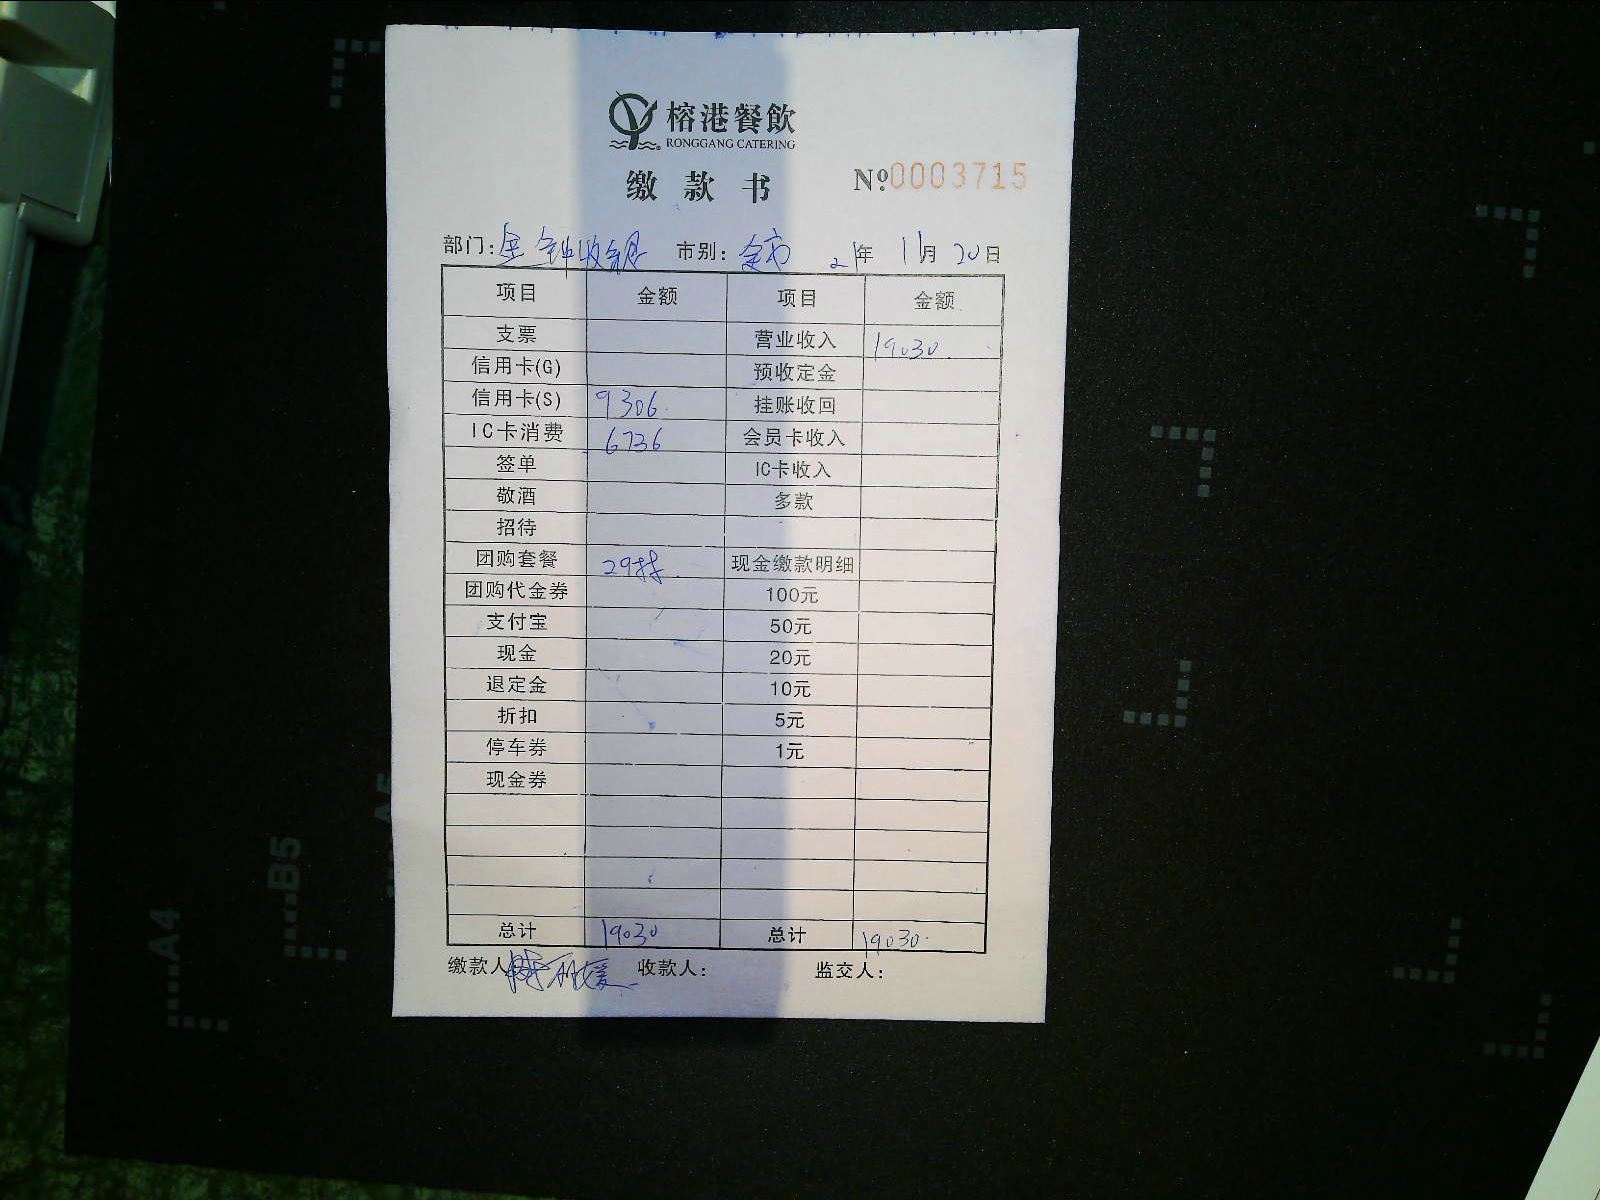 榕港餐飲
RONGGANG CATERING
缴款书 №0003715
部门:金钟收银 市别:全市 21年 11月 20日
项目 金额 项目 金额
支票 营业收入 19030.
信用卡(G) 预收定金
信用卡(S) 9306. 挂账收回
IC卡消费 6736 会员卡收入
签单 IC卡收入
敬酒 多款
招待
团购套餐 2988. 现金缴款明细
团购代金券 100元
支付宝 50元
现金 20元
退定金 10元
折扣 5元
停车券 1元
现金券
总计 19030 总计 19030.
缴款人 收款人: 监交人:
A5
B5
A4